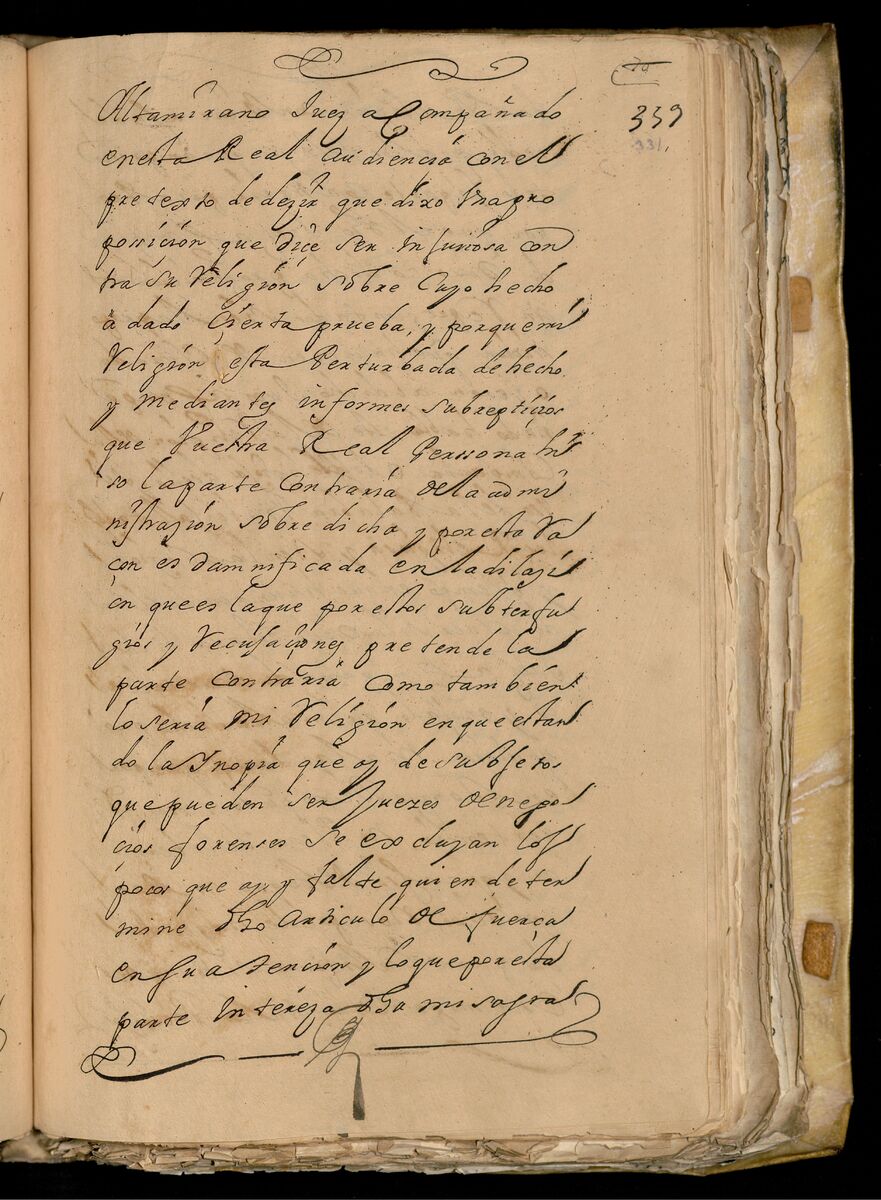 70
339
331,
Altamirano Juez acompañado
en esta Real Audiencia con el
pretexto de dezir que dixo vna pro
posicion que dice ser injuriosa con
tra su Religion sobre cuyo hecho
a dado cierta prueba, y porque mi
Religion esta Perturbada de hecho
y mediantes informes subrepticios
que Vuestra Real Perssona hi
so la parte contraria de la admi
nistrazion sobre dicha y por esta Ra
çon es damnificada en la dilazi
on que es la que por estos subterfu
gios y Recusaciones pretende la
parte contraria como tambien
lo seria mi Religion en que estan
do la Ynopia que ay de subjetos
que pueden ser Juezes de nego
cios forenses se excluyan los
pocos que ay y falte quien deter
mine dho articulo de fuerça
en su atencion y lo que por esta
parte Intereza dha mi sagra